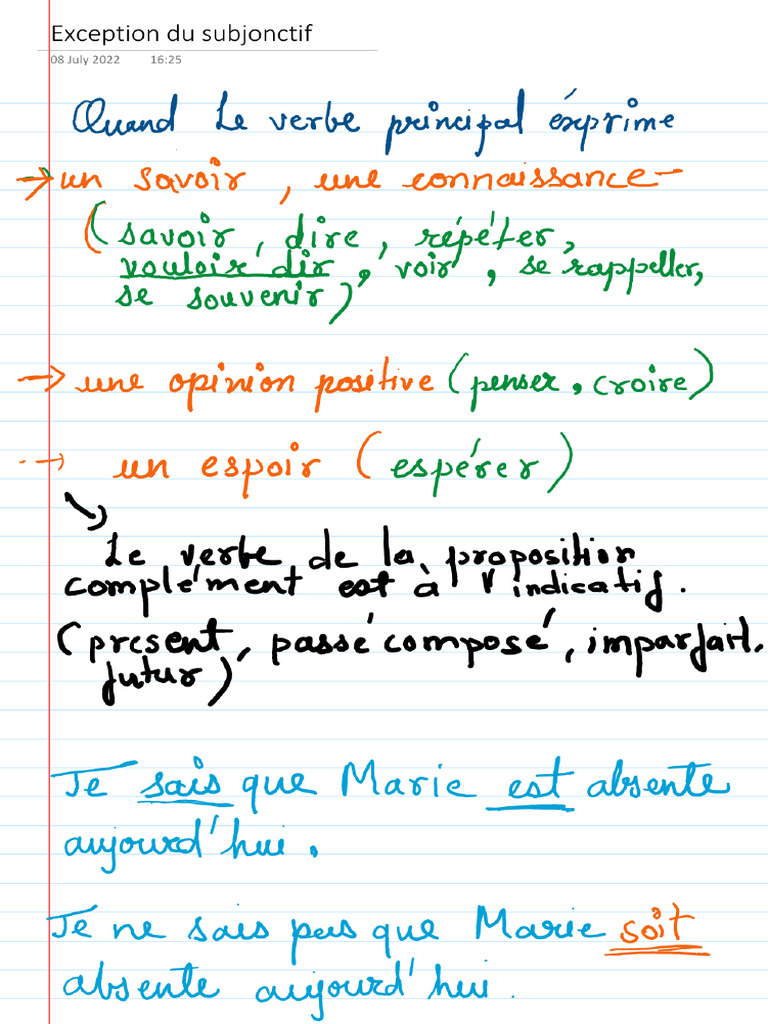 Exception du subjonctif
08 July 2022 16:25
Quand le verbe principal éxprime
→ un savoir, une connaissance -
(savoir, dire, répéter,
vouloir dir, voir, se rappeller,
se souvenir)
→ une opinion positive (penser, croire)
→ un espoir (espérer)
Le verbe de la proposition
complément est à l'indicatif.
(présent, passé composé, imparfait.
futur)
Je sais que Marie est absente
aujourd'hui.
Je ne sais pas que Marie soit
absente aujourd'hui.